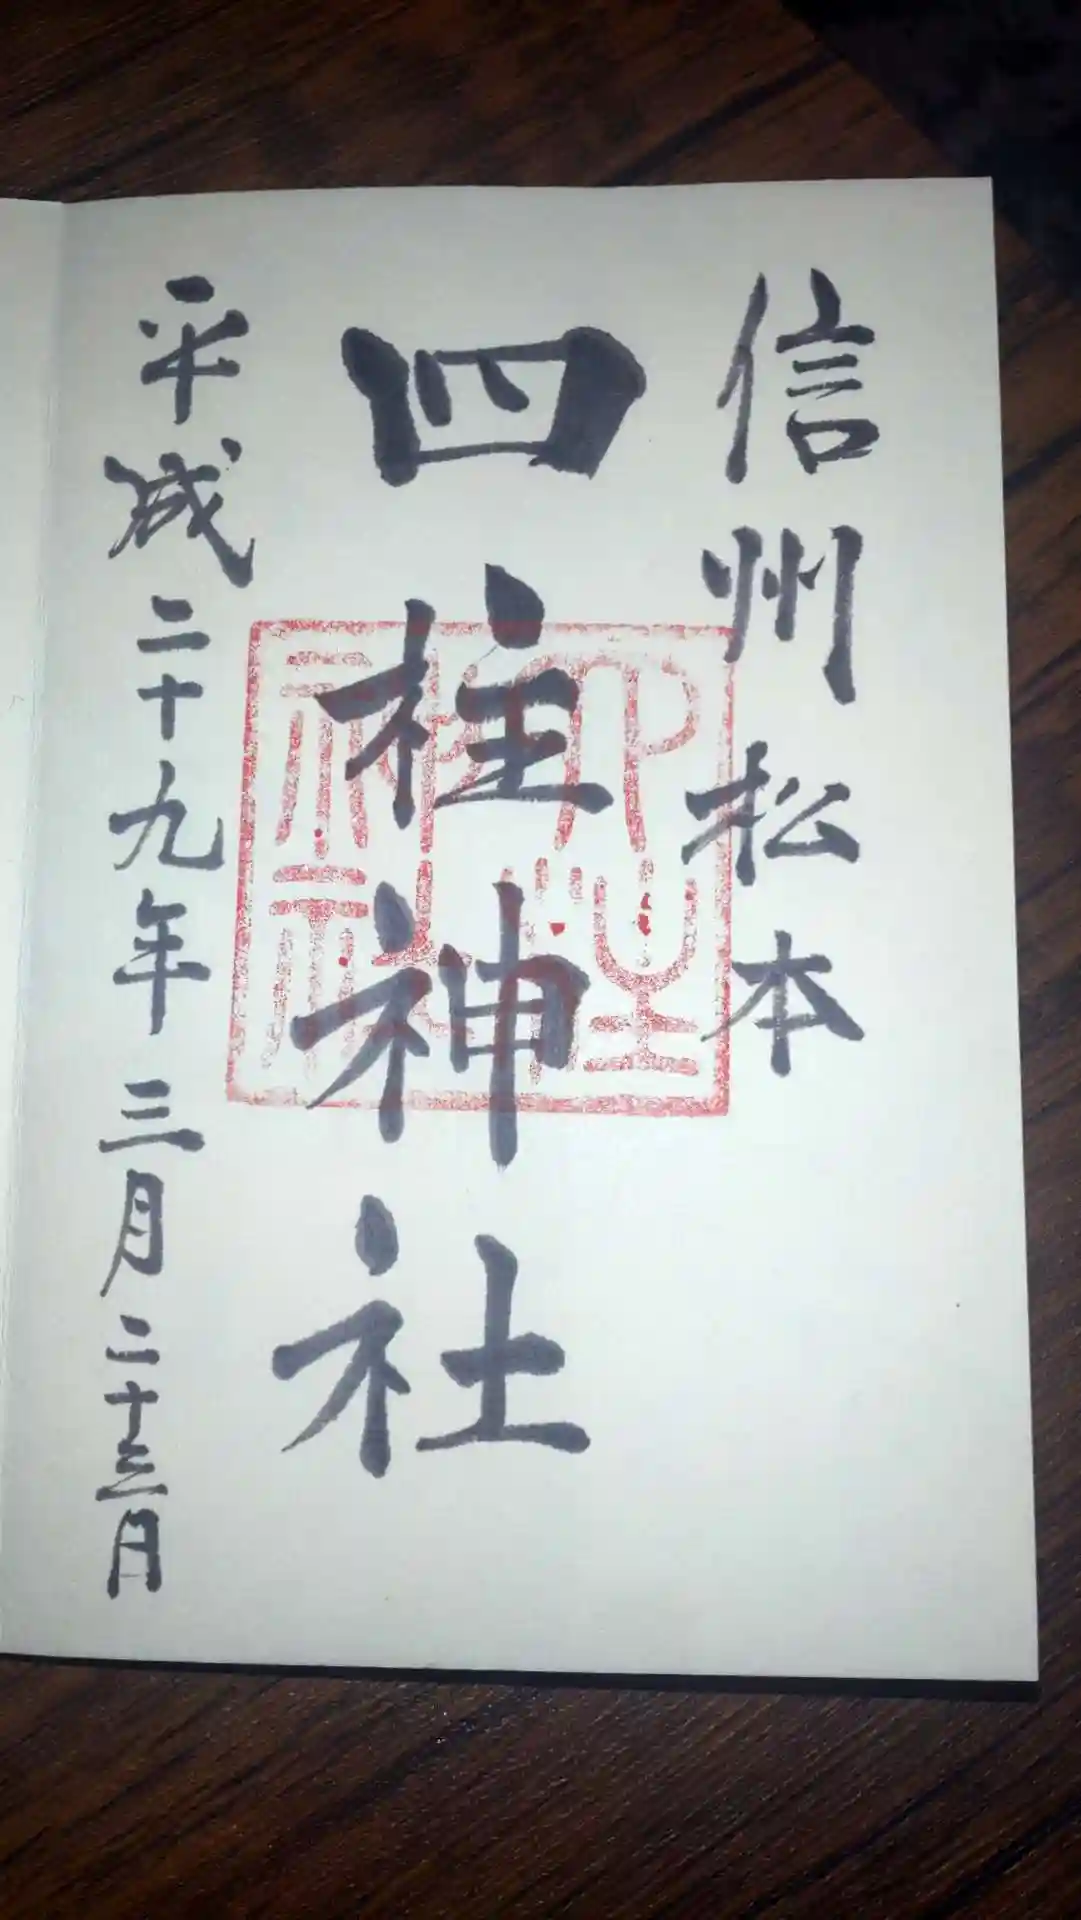 信州松本
四柱神社
平成二十九年三月二十三日
四柱神社